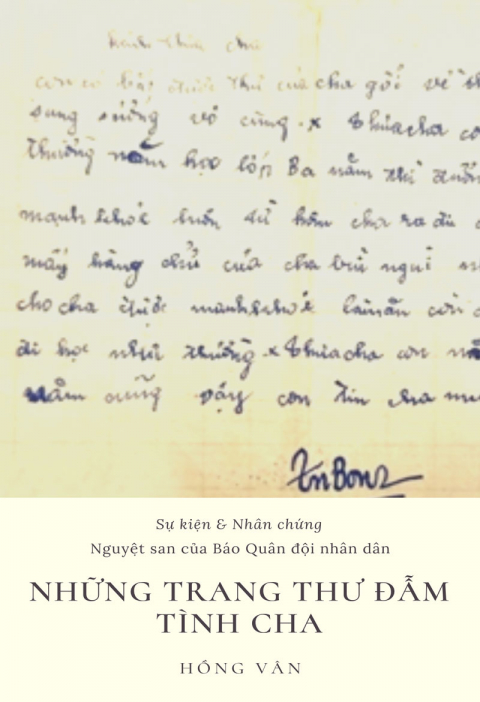 kính thưa cha
con có được thư của cha gởi về
sung sướng vô cùng. x thưa cha
thường năm học lớp Ba năm thứ
mạnh khỏe luôn từ hôm cha ra đi
mấy hàng chữ của cha bùi ngùi
cho cha được mạnh khỏe làm ăn còn
đi học như thường x thưa cha con
cũng vậy con tin cha
Sự kiện & Nhân chứng
Nguyệt san của Báo Quân đội nhân dân
NHỮNG TRANG THƯ ĐẪM
TÌNH CHA
HỒNG VÂN